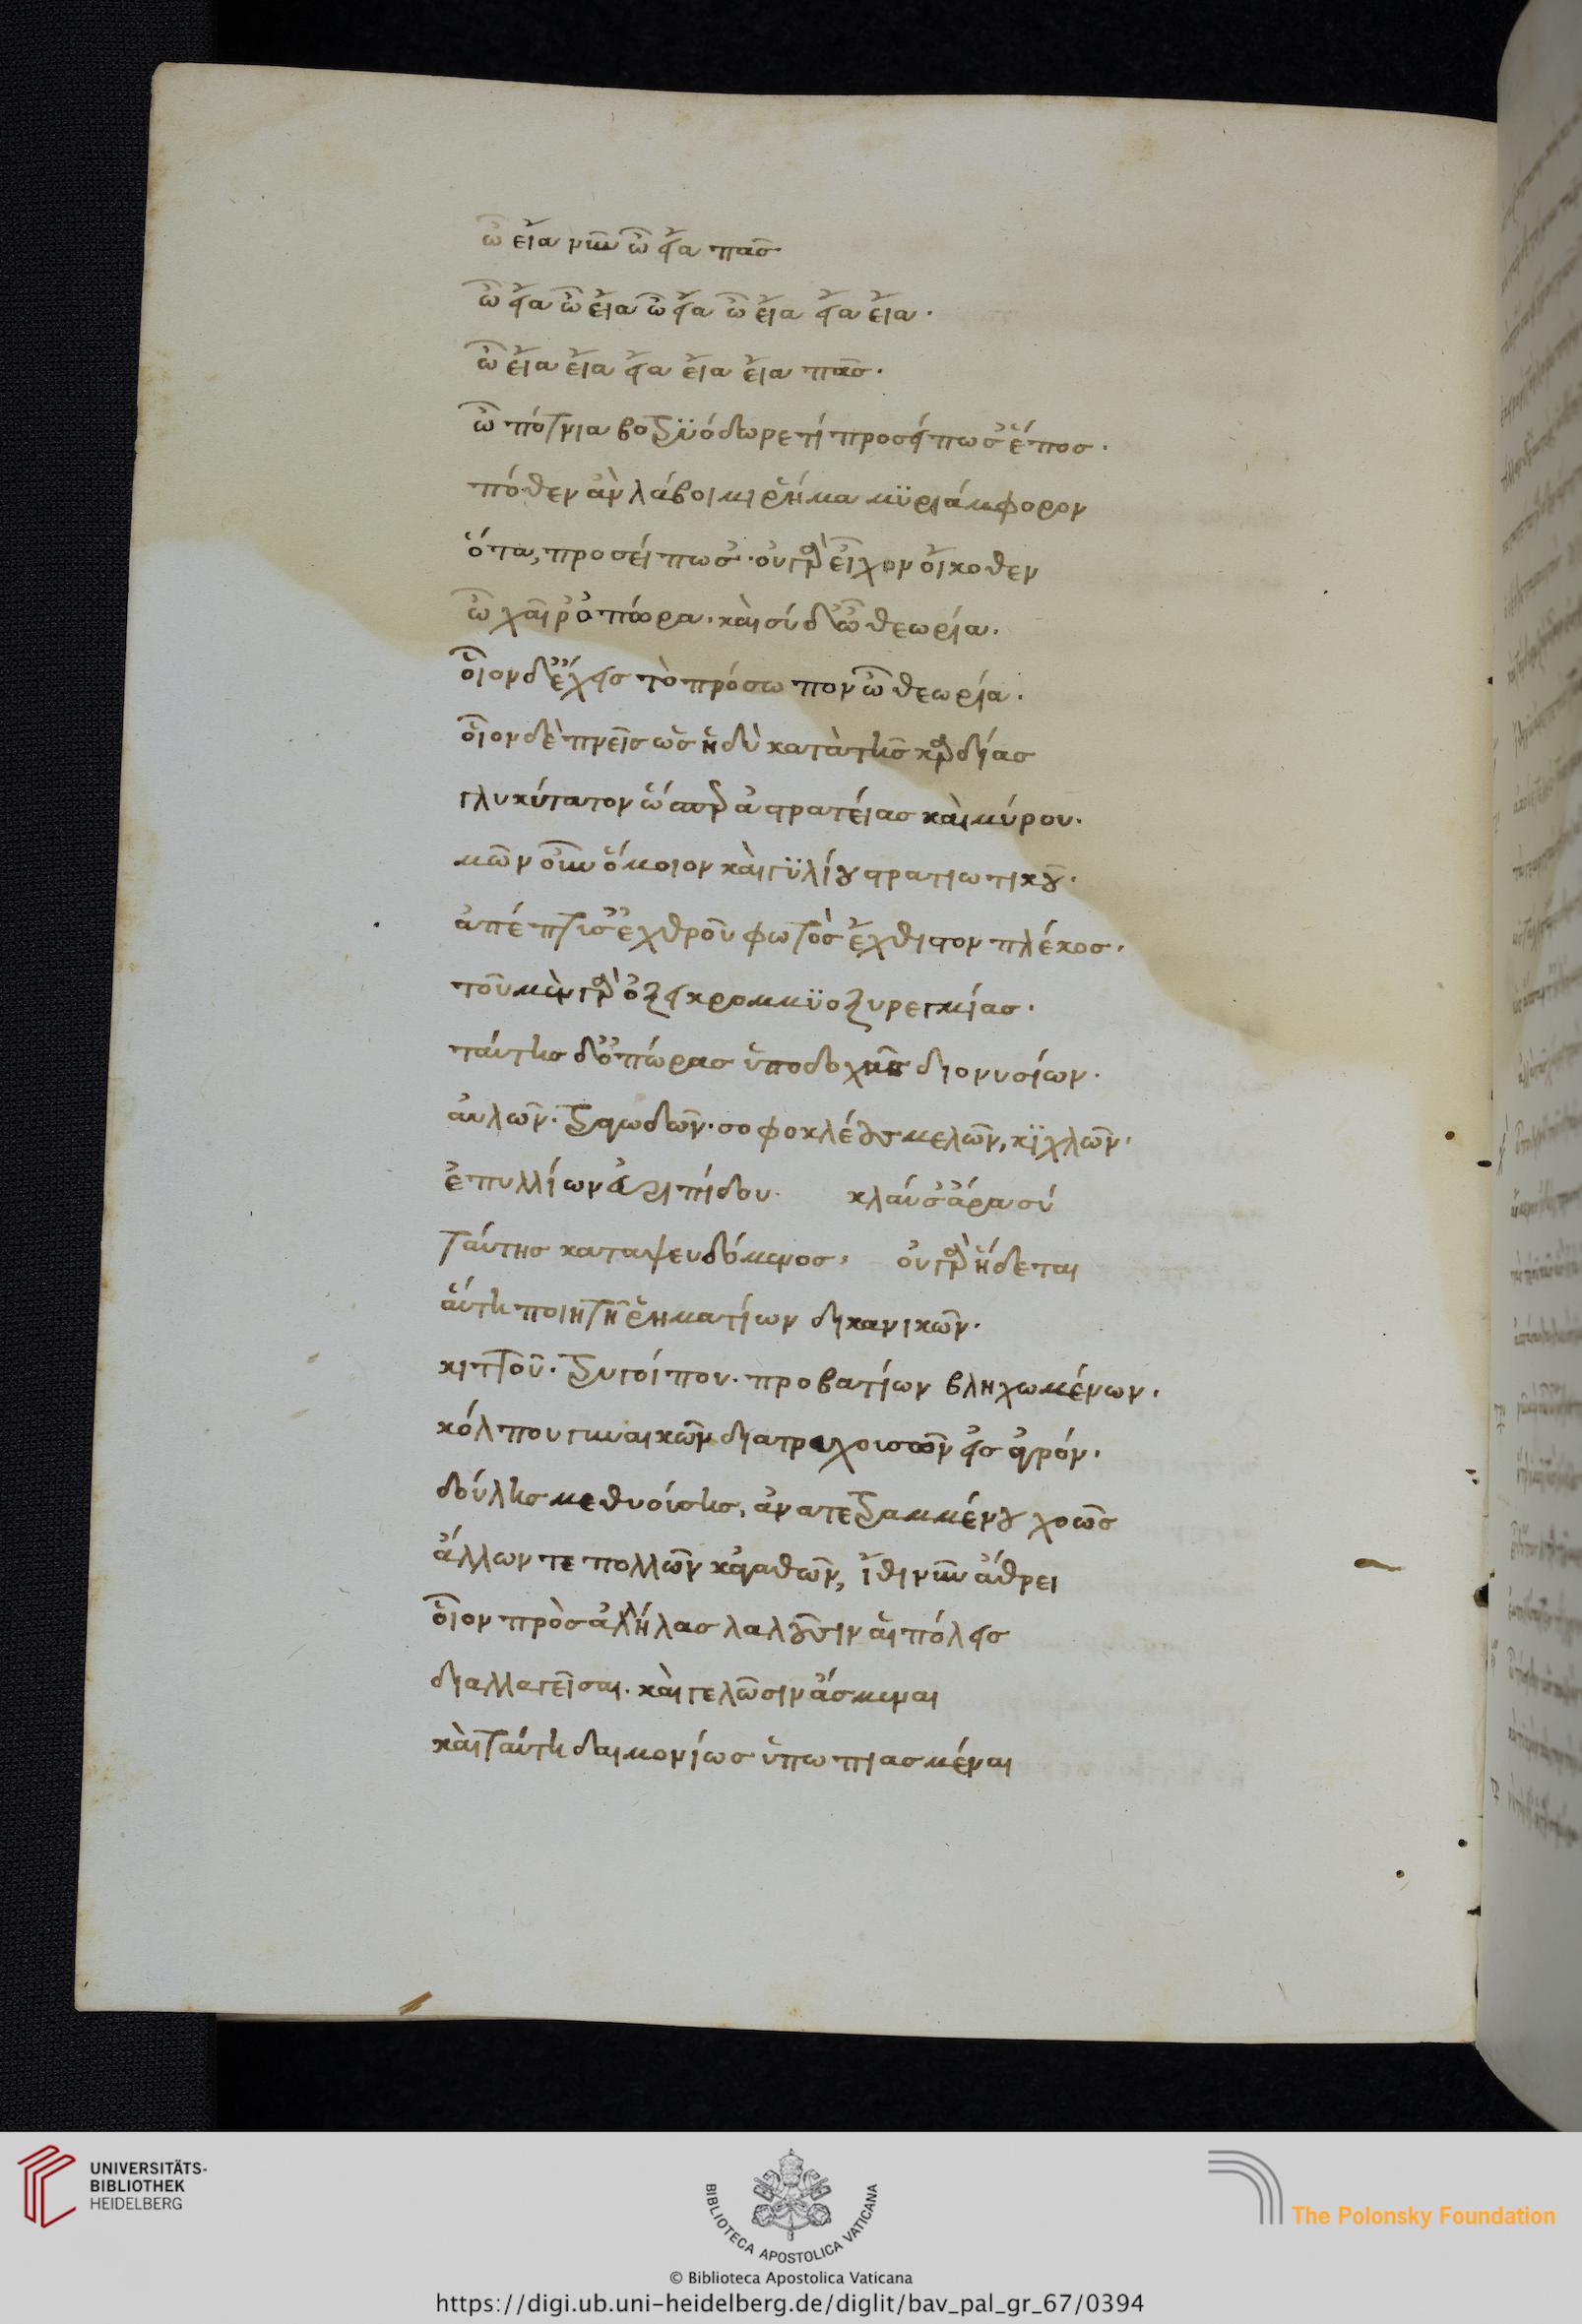 ὦ εἶα νῦν ὦ εἶα πᾶσ
ὦ εἶα ὦ εἶα ὦ εἶα ὦ εἶα εἶα εἶα·
ὦ εἶα εἶα εἶα εἶα εἶα πᾶσ·
ὦ πότνια βοτρϋόδωρε τί προσείπωσ' ἔποσ·
πόθεν ἂν λάβοιμι ῥῆμα μϋριάμφορον
ὅτω, προσείπωσ'· οὐ γὰρ εἶχον οἴκοθεν
ὦ χαῖρ' ὀπώρα· καὶ σὺ δ' ὦ θεωρία·
οἷον δ' ἔχεισ τὸ πρόσωπον ὦ θεωρία·
οἷον δὲ πνεῖσ ὡσ ἡδὺ κατὰ τῆσ καρδίασ
γλυκύτατον ὥσπερ ἀστρατείασ καὶ μύρου·
μῶν οὖν ὅμοιον καὶ γϋλίου στρατιωτικοῦ·
ἀπέπτυσ' ἐχθροῦ φωτὸσ ἔχθιστον πλέκοσ·
τοῦ μὲν γὰρ ὄζει κρομμϋοξυρεγμίασ·
ταύτησ δ' ὀπώρασ ὑποδοχῆσ διονυσίων·
αὐλῶν· τρυγωδῶν· σοφοκλέουσ μελῶν, κϊχλῶν·
ἐπυλλίων εὐριπίδου· κλαύσ' ἄρα σὺ
ταύτησ καταψευδόμενοσ· οὐ γὰρ ἥδεται
αὕτη ποιητῆ ῥηματίων δικανικῶν·
κιττοῦ· τρυγοίπου· προβατίων βληχωμένων·
κόλπου γυναικῶν διατρεχουσῶν εἰσ ἀγρόν·
δούλησ μεθυούσησ, ἀνατετραμμένου χοῶσ
ἄλλων τε πολλῶν κἀγαθῶν, ἴθι νῦν ἄθρει
οἷον πρὸσ ἀλλήλασ λαλοῦσιν αἱ πόλεισ
διαλλαγεῖσαι· καὶ γελῶσιν ἄσμεναι
καὶ ταύτη δαιμονίωσ ὑπωπιασμέναι
UNIVERSITÄTS-
BIBLIOTHEK
HEIDELBERG
BIBLIOTECA APOSTOLICA VATICANA
The Polonsky Foundation
© Biblioteca Apostolica Vaticana
https://digi.ub.uni-heidelberg.de/diglit/bav_pal_gr_67/0394